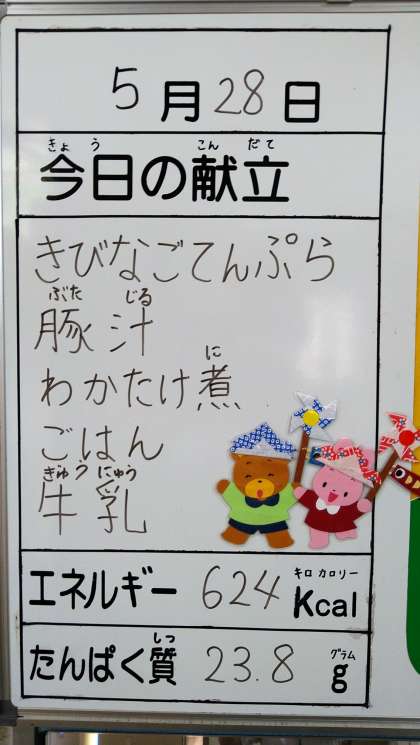 5月28日
きょう こんだて
今日の献立
きびなごてんぷら
ぶた じる
豚汁
に
わかたけ煮
ごはん
ぎゅうにゅう
牛乳
キロ カロリー
エネルギー 624 Kcal
しつ グラム
たんぱく質 23.8 g